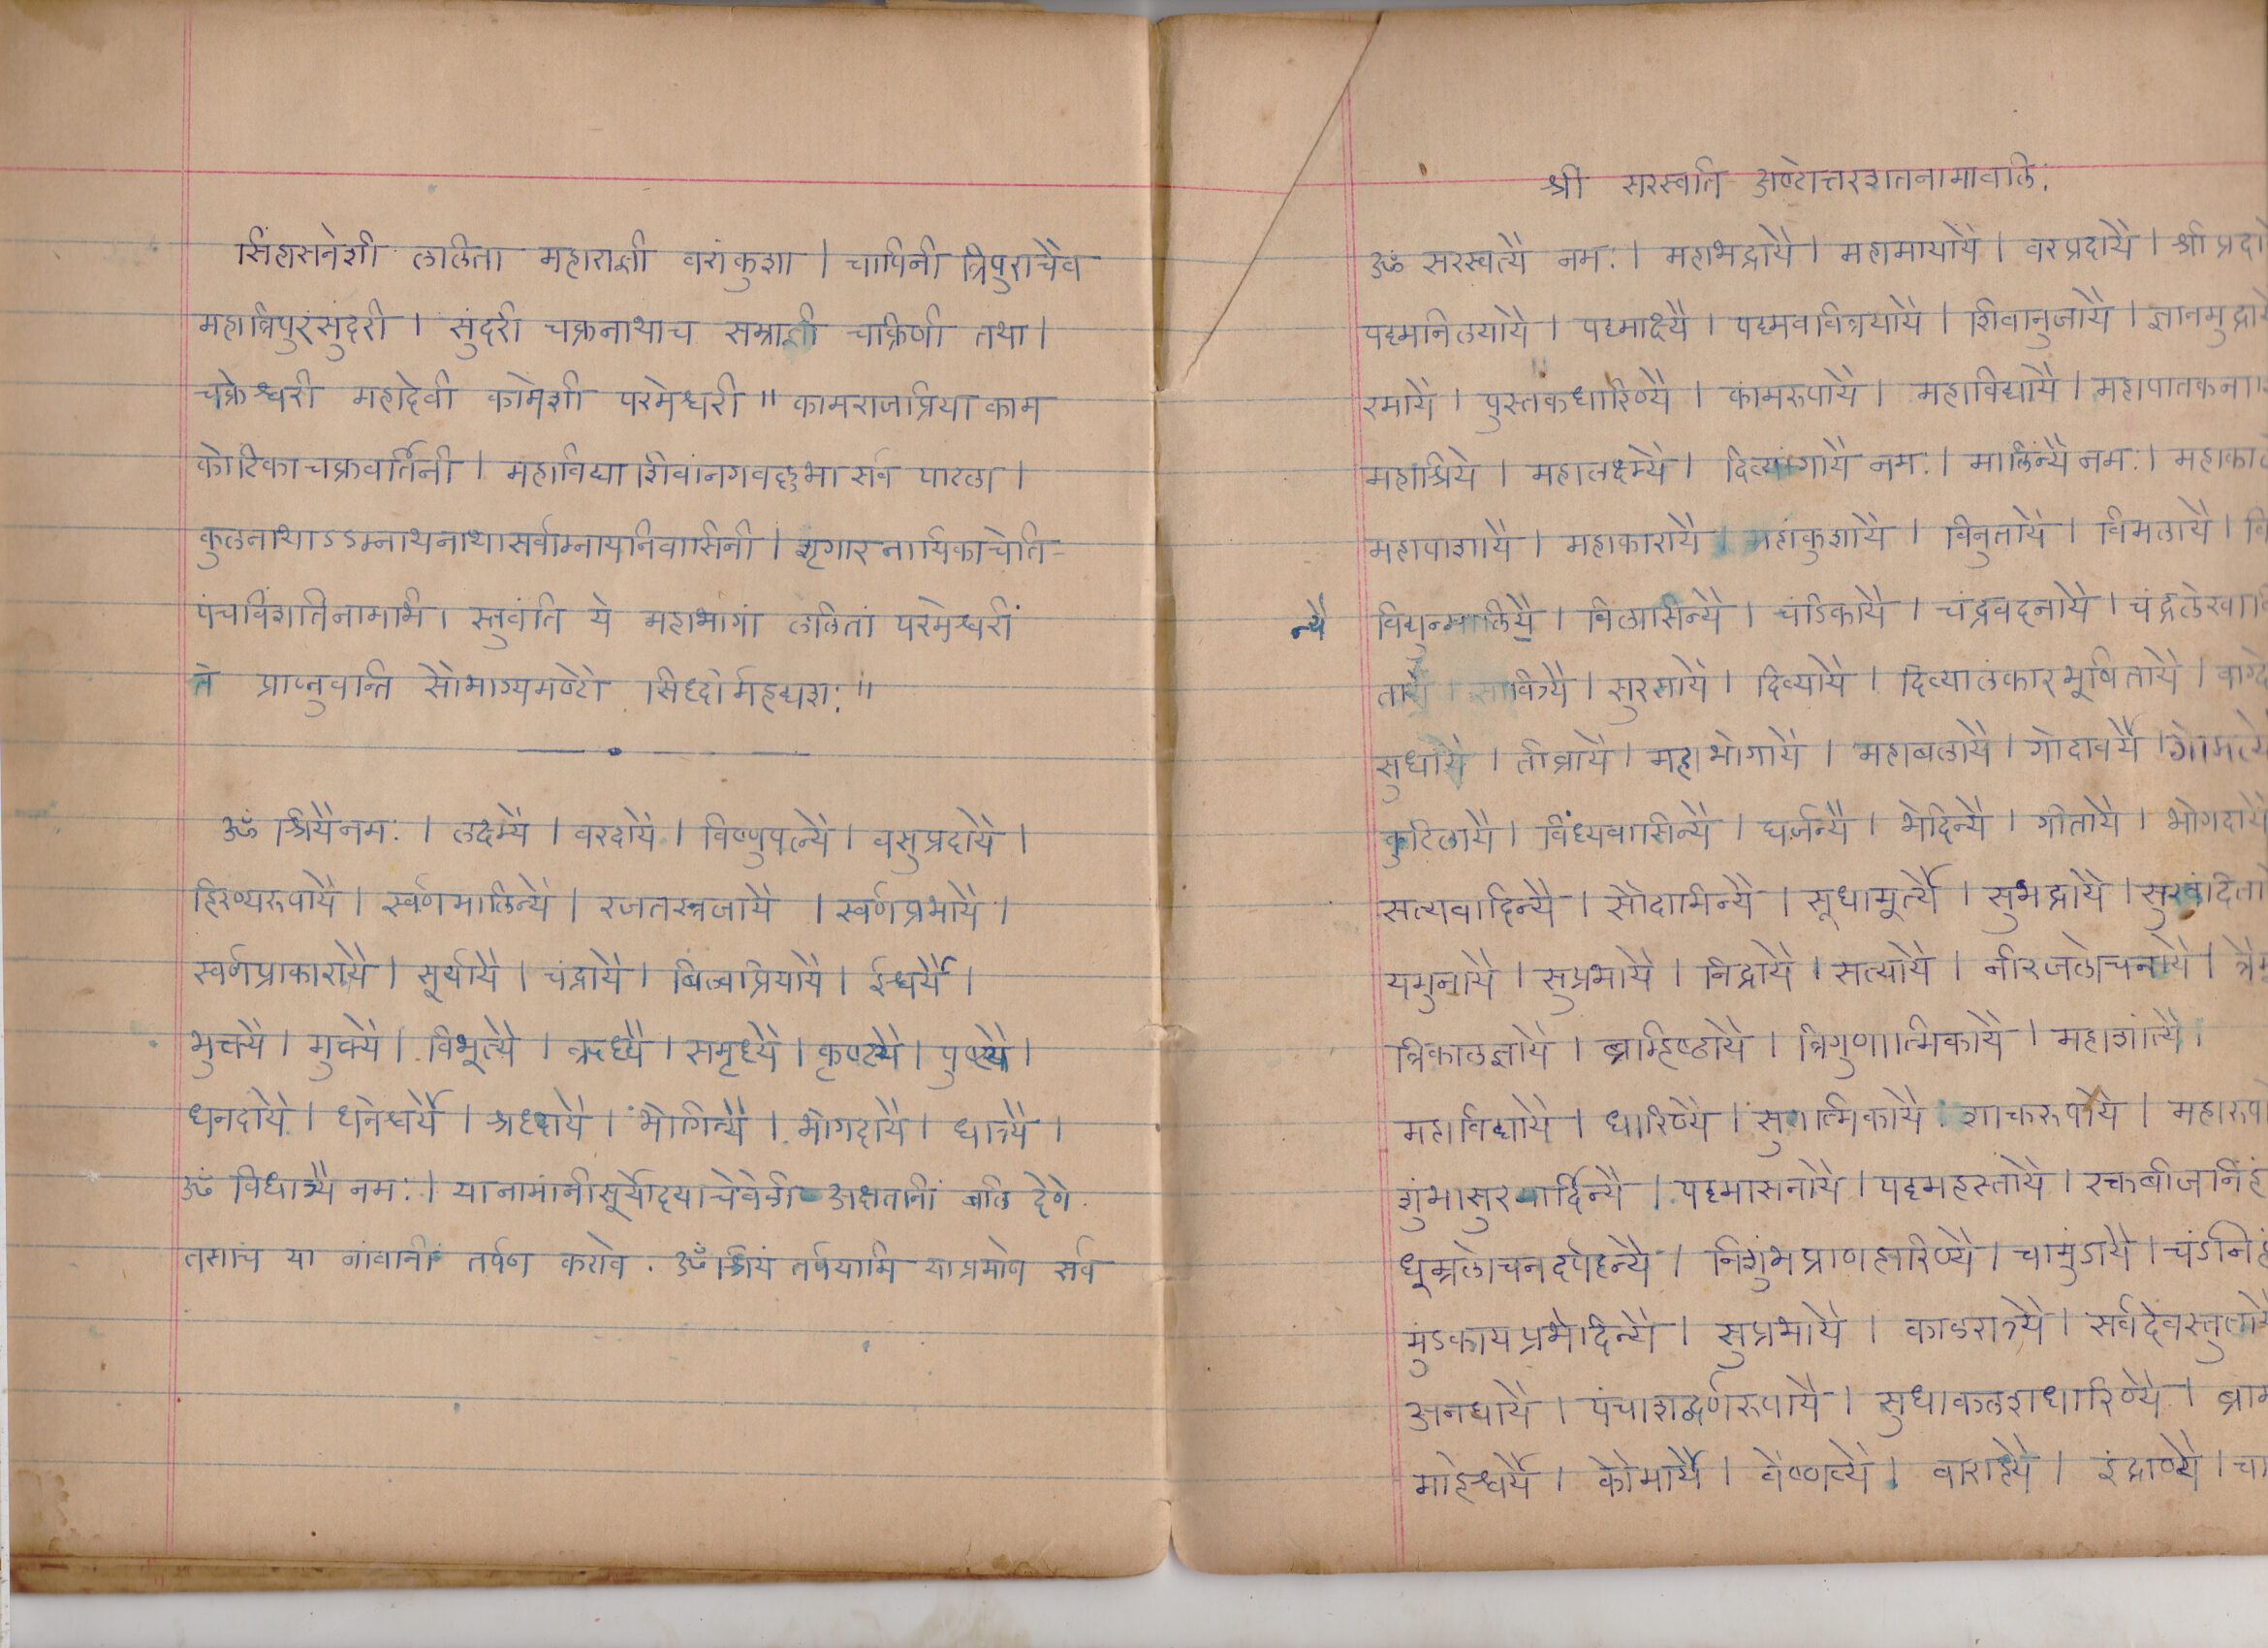 सिंहासनेशी ललिता महाराज्ञी वरांकुशा । चापिनी त्रिपुराचैव
महात्रिपुरसुंदरी । सुंदरी चक्रनाथाच सम्राज्ञी चक्रिणी तथा ।
चक्रेश्वरी महादेवी कामेशी परमेश्वरी ॥ कामराजप्रिया काम
कोटिका चक्रवर्तिनी । महाविद्या शिवांनगवल्लभा सर्व पाटला ।
कुलनाथाऽऽम्नायनाथा सर्वाम्नायनिवासिनी । शृगार नायिका चेति-
पंचविंशतिनामभि । स्तुवंति ये महाभागां ललितां परमेश्वरीं
ते प्राप्नुवन्ति सौभाग्यमष्टौ सिद्धीर्महद्यशः ॥
ॐ श्रियैनमः । लक्ष्म्यै । वरदायै । विष्णुपत्न्यै । वसुप्रदायै ।
हिरण्यरूपायै । स्वर्णमालिन्यै । रजतस्त्रजायै । स्वर्णप्रभायै ।
स्वर्णप्राकारायै । सूर्यायै । चंद्रायै । बिल्वप्रियायै । ईश्वर्यै ।
भुक्त्यै । मुक्त्यै । विभूत्यै । ऋध्यै । समृध्यै । कृष्ट्यै । पुष्ट्यै ।
धनदायै । धनेश्वर्यै । श्रद्धायै । भोगिन्यै । भोगदायै । धात्र्यै ।
ॐ विधात्र्यै नमः । या नामांनी सूर्योदयाचेवेळी अक्षतानीं बलि देणे
तसाच या नांवानीं तर्पण करावे . ॐ श्रियं तर्पयामि याप्रमाणे सर्व
श्री सरस्वति अष्टोत्तरशतनामावलि.
ॐ सरस्वत्यै नमः । महाभद्रायै । महामायायै । वरप्रदायै । श्रीप्रदा
पद्मनिलयायै । पद्माक्ष्यै । पद्मवक्त्रियायै । शिवानुजायै । ज्ञानमुद्रा
रमायै । पुस्तकधारिण्यै । कामरूपायै । महाविद्यायै । महापातकना
महाश्रिये । महालक्ष्म्यै । दिव्यांगायै नमः । मालिन्यै नमः । महाका
महापाशायै । महाकारायै । महांकुशायै । विनुतायै । विमलायै । वि
न्यै विद्युन्मालियै । विलासिन्यै । चंडिकायै । चंद्रवदनायै । चंद्रलेखावि
तायै । सावित्र्यै । सुरसायै । दिव्यायै । दिव्यालंकारभूषितायै । वाग्दे
सुधायै । तीव्रायै । महाभोगायै । महाबलायै । गोदावर्यै । गोमत्यै
कुटिलायै । विंध्यवासिन्यै । घर्जन्यै । भेदिन्यै । गीतायै । भोगदायै
सत्यवादिन्यै । सौदामिन्यै । सूधामूर्त्यै । सुभद्रायै । सुरवंदिता
यमुनायै । सुप्रभायै । निद्रायै । सत्यायै । नीरजलोचनायै । त्रै
त्रिकालज्ञायै । ब्रम्हिष्ठायै । त्रिगुणात्मिकायै । महाशांत्यै ।
महाविद्यायै । धारिण्यै । सुगात्मिकायै । शाकरूपायै । महारूप
शुंभासुरमार्दिन्यै । पद्मासनायै । पद्महस्तायै । रक्तबीजनिहं
धूम्रलोचनदर्पहन्यै । निशुंभप्राणहारिण्यै । चामुंडायै । चंडनिह
मुंडकायप्रभेदिन्यै । सुप्रभायै । काळरात्र्यै । सर्वदेवस्तुतायै
अनघायै । पंचाशद्वर्णरूपायै । सुधाकलशधारिण्यै । ब्राम
माहेश्वर्यै । कौमार्यै । वैष्णव्यै । वाराह्यै । इंद्राण्यै । चा